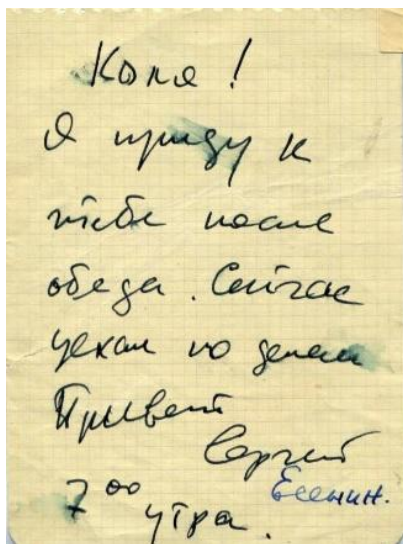 Коля!
Я приду к
тебе после
обеда. Сейчас
уехал по делам
Привет
Сергей
Есенин.
7⁰⁰ утра.